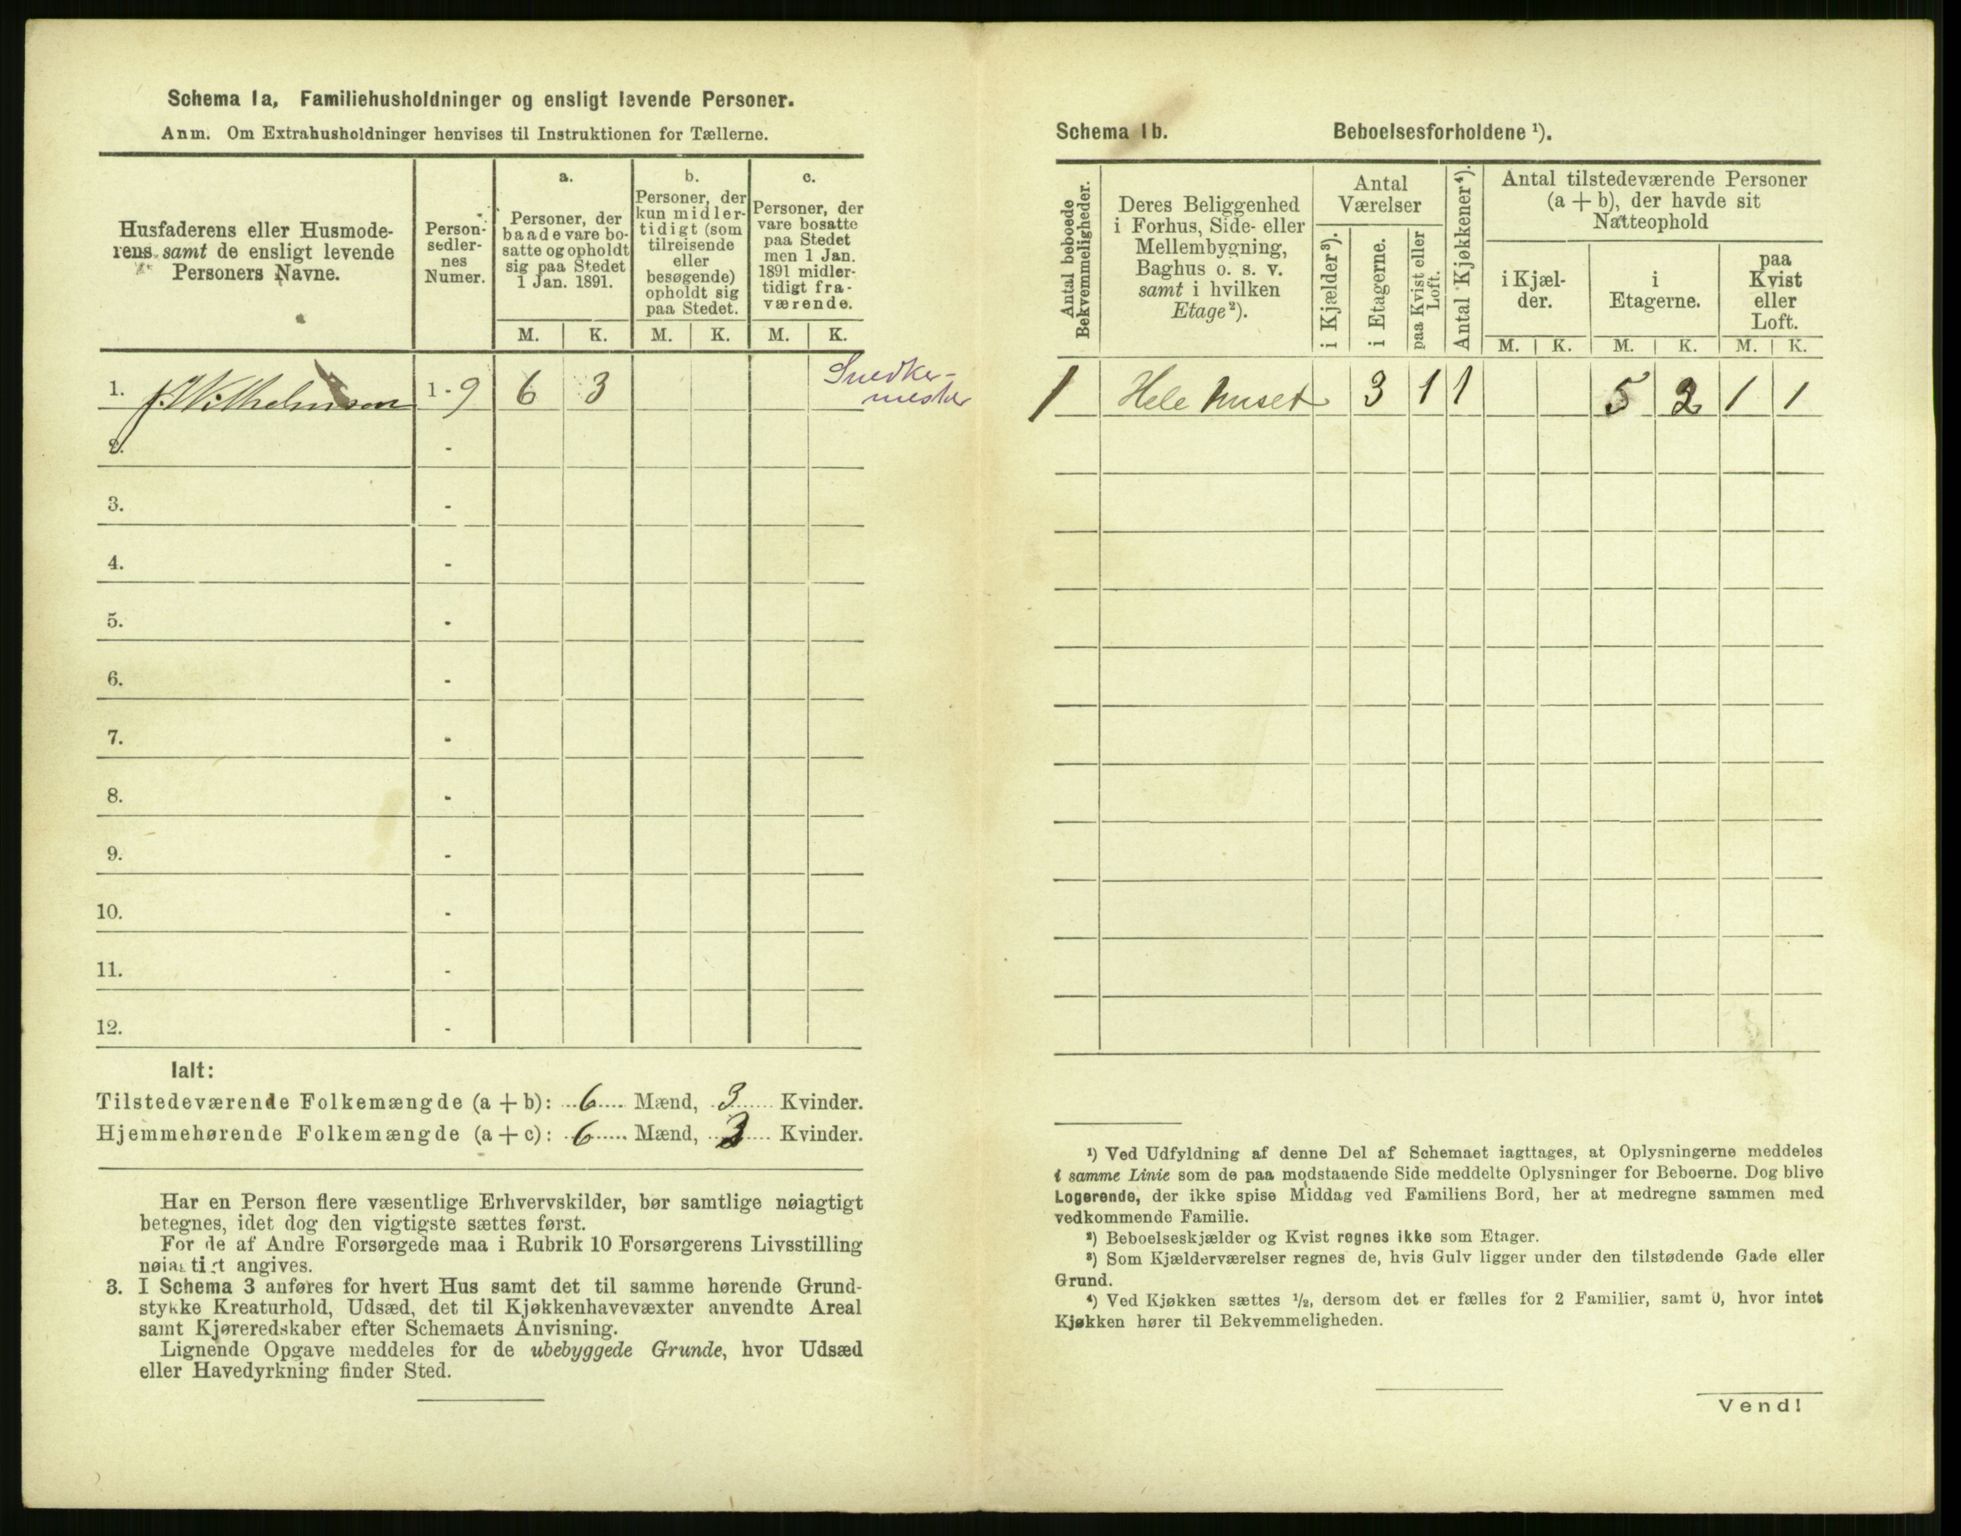 Schema 1a, Familiehusholdninger og ensligt levende Personer.
Anm. Om Extrahusholdninger henvises til Instruktionen for Tællerne.
Husfaderens eller Husmoderens samt de ensligt levende Personers Navne.
Person-sedler-nes Numer.
a.
Personer, der baade vare bosatte og opholdt sig paa Stedet 1 Jan. 1891.
b.
Personer, der kun midlertidigt (som tilreisende eller besøgende) opholdt sig paa Stedet.
c.
Personer, der vare bosatte paa Stedet men 1 Jan. 1891 midlertidigt fraværende.
M. K. M. K. M. K.
1. J. Wilhelmsen 1-9 6 3 Snedker-
mester
2. -
3. -
4. -
5. -
6. -
7. -
8. -
9. -
10. -
11. -
12. -
Ialt:
Tilstedeværende Folkemængde (a + b): 6 Mænd, 3 Kvinder.
Hjemmehørende Folkemængde (a + c): 6 Mænd, 3 Kvinder.
Har en Person flere væsentlige Erhvervskilder, bør samtlige nøiagtigt
betegnes, idet dog den vigtigste sættes først.
For de af Andre Forsørgede maa i Rubrik 10 Forsørgerens Livsstilling
nøiagtigt angives.
3. I Schema 3 anføres for hvert Hus samt det til samme hørende Grund-
stykke Kreaturhold, Udsæd, det til Kjøkkenhavevæxter anvendte Areal
samt Kjøreredskaber efter Schemaets Anvisning.
Lignende Opgave meddeles for de ubebyggede Grunde, hvor Udsæd
eller Havedyrkning finder Sted.
Schema 1b. Beboelsesforholdene ¹).
Antal beboede Bekvemmeligheder.
Deres Beliggenhed i Forhus, Side- eller Mellembygning, Baghus o. s. v. samt i hvilken Etage²).
Antal Værelser
i Kjælder³).
i Etagerne.
paa Kvist eller Loft.
Antal Kjøkkener⁴).
Antal tilstedeværende Personer (a + b), der havde sit Natteophold
i Kjæl-der.
i Etagerne.
paa Kvist eller Loft.
M. K. M. K. M. K.
1 Hele huset 3 1 1 5 2 1 1
¹) Ved Udfyldning af denne Del af Schemaet iagttages, at Oplysningerne meddeles
i samme Linie som de paa modstaaende Side meddelte Oplysninger for Beboerne. Dog blive
Logerende, der ikke spise Middag ved Familiens Bord, her at medregne sammen med
vedkommende Familie.
²) Beboelseskjælder og Kvist regnes ikke som Etager.
³) Som Kjælderværelser regnes de, hvis Gulv ligger under den tilstødende Gade eller
Grund.
⁴) Ved Kjøkken sættes ½, dersom det er fælles for 2 Familier, samt 0, hvor intet
Kjøkken hører til Bekvemmeligheden.
Vend!